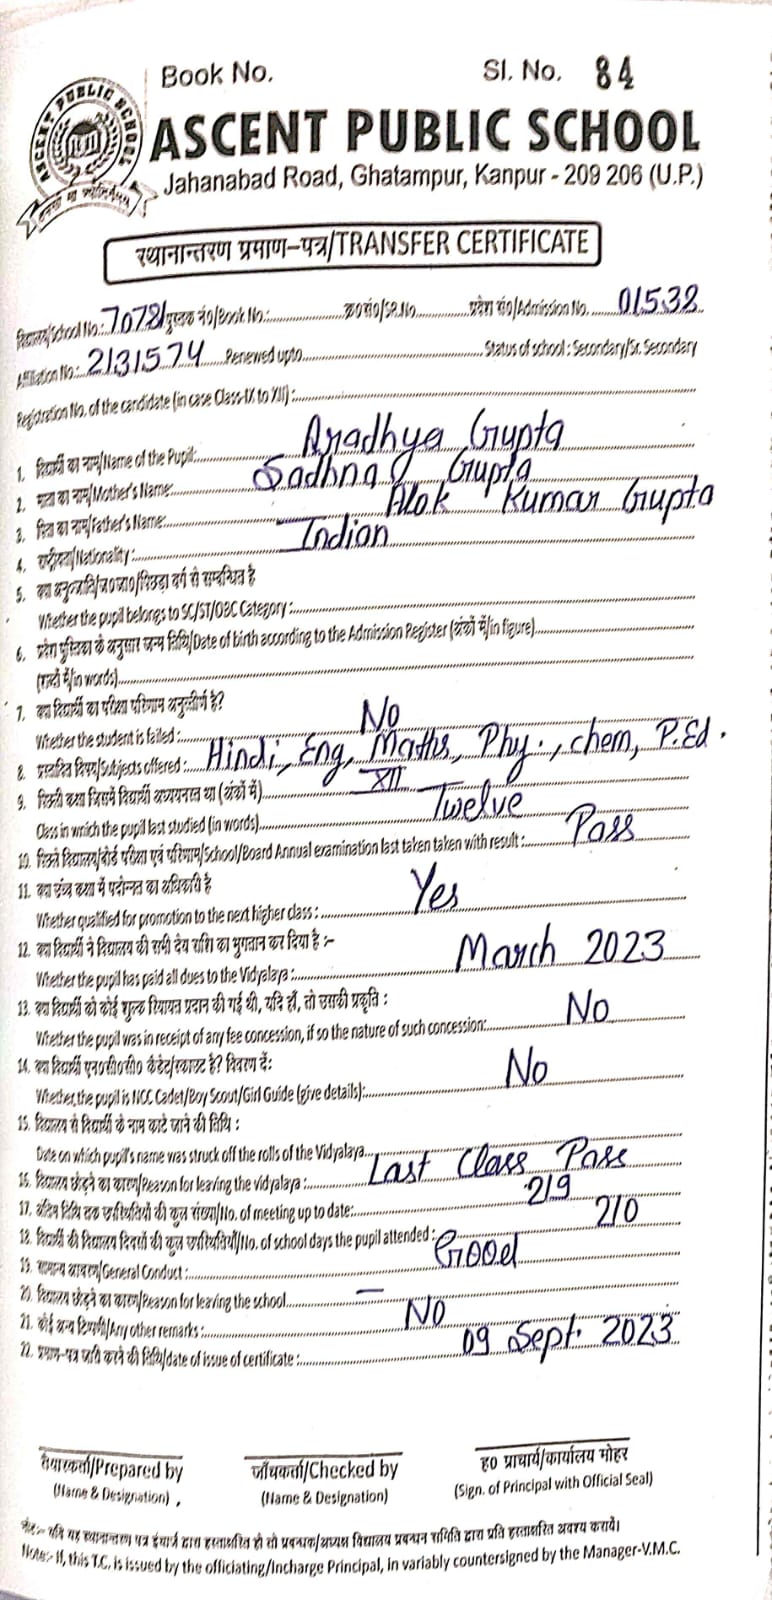 Book No. Sl. No. 84
ASCENT PUBLIC SCHOOL
ASCENT PUBLIC SCHOOL
Jahanabad Road, Ghatampur, Kanpur - 209 206 (U.P.)
स्थानान्तरण प्रमाण-पत्र/TRANSFER CERTIFICATE
विद्यालय/School No.: 70781 पुस्तक नं०/Book No.: क्र०सं०/SR.No. प्रवेश सं०/Admission No. 01538
Affiliation No.: 2131574 Renewed upto. Status of school : Secondary/Sr. Secondary
Registration No. of the candidate (in case Class-IX to XII) :
1. विद्यार्थी का नाम/Name of the Pupil: Aradhya Gupta
2. माता का नाम/Mother's Name: Sadhna Gupta
3. पिता का नाम/Father's Name: Alok Kumar Gupta
4. राष्ट्रीयता/Nationality : Indian
5. क्या अनु०जाति/ज०जा०/पिछड़ा वर्ग से सम्बन्धित है
Whether the pupil belongs to SC/ST/OBC Category :
6. प्रवेश पुस्तिका के अनुसार जन्म तिथि/Date of birth according to the Admission Register (अंकों में/in figure)
(शब्दों में/in words)
7. क्या विद्यार्थी का परीक्षा परिणाम अनुत्तीर्ण है?
Whether the student is failed : No
8. प्रस्तावित विषय/Subjects offered : Hindi, Eng, Maths, Phy., chem, P.Ed.
9. पिछली कक्षा जिसमें विद्यार्थी अध्ययनरत था (अंकों में) XII
Class in which the pupil last studied (in words) Twelve
10. पिछले विद्यालय/बोर्ड परीक्षा एवं परिणाम/School/Board Annual examination last taken taken with result : Pass
11. क्या उच्च कक्षा में पदोन्नत का अधिकारी है
Whether qualified for promotion to the next higher class : Yes
12. क्या विद्यार्थी ने विद्यालय की सभी देय राशि का भुगतान कर दिया है :-
Whether the pupil has paid all dues to the Vidyalaya : March 2023
13. क्या विद्यार्थी को कोई शुल्क रियायत प्रदान की गई थी, यदि हाँ, तो उसकी प्रकृति :
Whether the pupil was in receipt of any fee concession, if so the nature of such concession: No
14. क्या विद्यार्थी एन०सी०सी० कैडेट/स्काउट है? विवरण दें:
Whether, the pupil is NCC Cadet/Boy Scout/Girl Guide (give details): No
15. विद्यालय से विद्यार्थी के नाम काटे जाने की तिथि :
Date on which pupil's name was struck off the rolls of the Vidyalaya
16. विद्यालय छोड़ने का कारण/Reason for leaving the vidyalaya : Last Class Pass
17. अंतिम तिथि तक उपस्थितियों की कुल संख्या/No. of meeting up to date: 219
18. विद्यार्थी की विद्यालय दिवसों की कुल उपस्थितियाँ/No. of school days the pupil attended : 210
19. सामान्य आचरण/General Conduct : Good
20. विद्यालय छोड़ने का कारण/Reason for leaving the school —
21. कोई अन्य टिप्पणी/Any other remarks : NO
22. प्रमाण-पत्र जारी करने की तिथि/date of issue of certificate : 09 Sept. 2023
तैयारकर्ता/Prepared by जाँचकर्ता/Checked by ह० प्राचार्य/कार्यालय मोहर
(Name & Designation) , (Name & Designation) (Sign. of Principal with Official Seal)
नोट:- यदि यह स्थानान्तरण पत्र इंचार्ज द्वारा हस्ताक्षरित हो तो प्रबन्धक/अध्यक्ष विद्यालय प्रबन्धन समिति द्वारा प्रति हस्ताक्षरित अवश्य करायें।
Note:- If, this T.C. is issued by the officiating/Incharge Principal, in variably countersigned by the Manager-V.M.C.